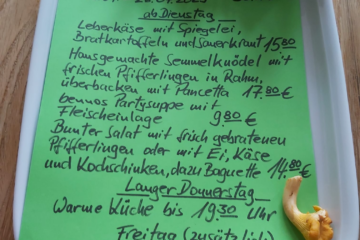 ab Dienstag
Leberkäse mit Spiegelei,
Bratkartoffeln und Sauerkraut 15.80
Hausgemachte Semmelknödel mit
frischen Pfifferlingen in Rahm,
überbacken mit Pancetta 17.80 €
bennos Partysuppe mit
Fleischeinlage 9.80 €
Bunter Salat mit frisch gebratenen
Pfifferlingen oder mit Ei, Käse
und Kochschinken, dazu Baguette 14.80 €
Langer Donnerstag
Warme Küche bis 19.30 Uhr
Freitag (zusätzlich)